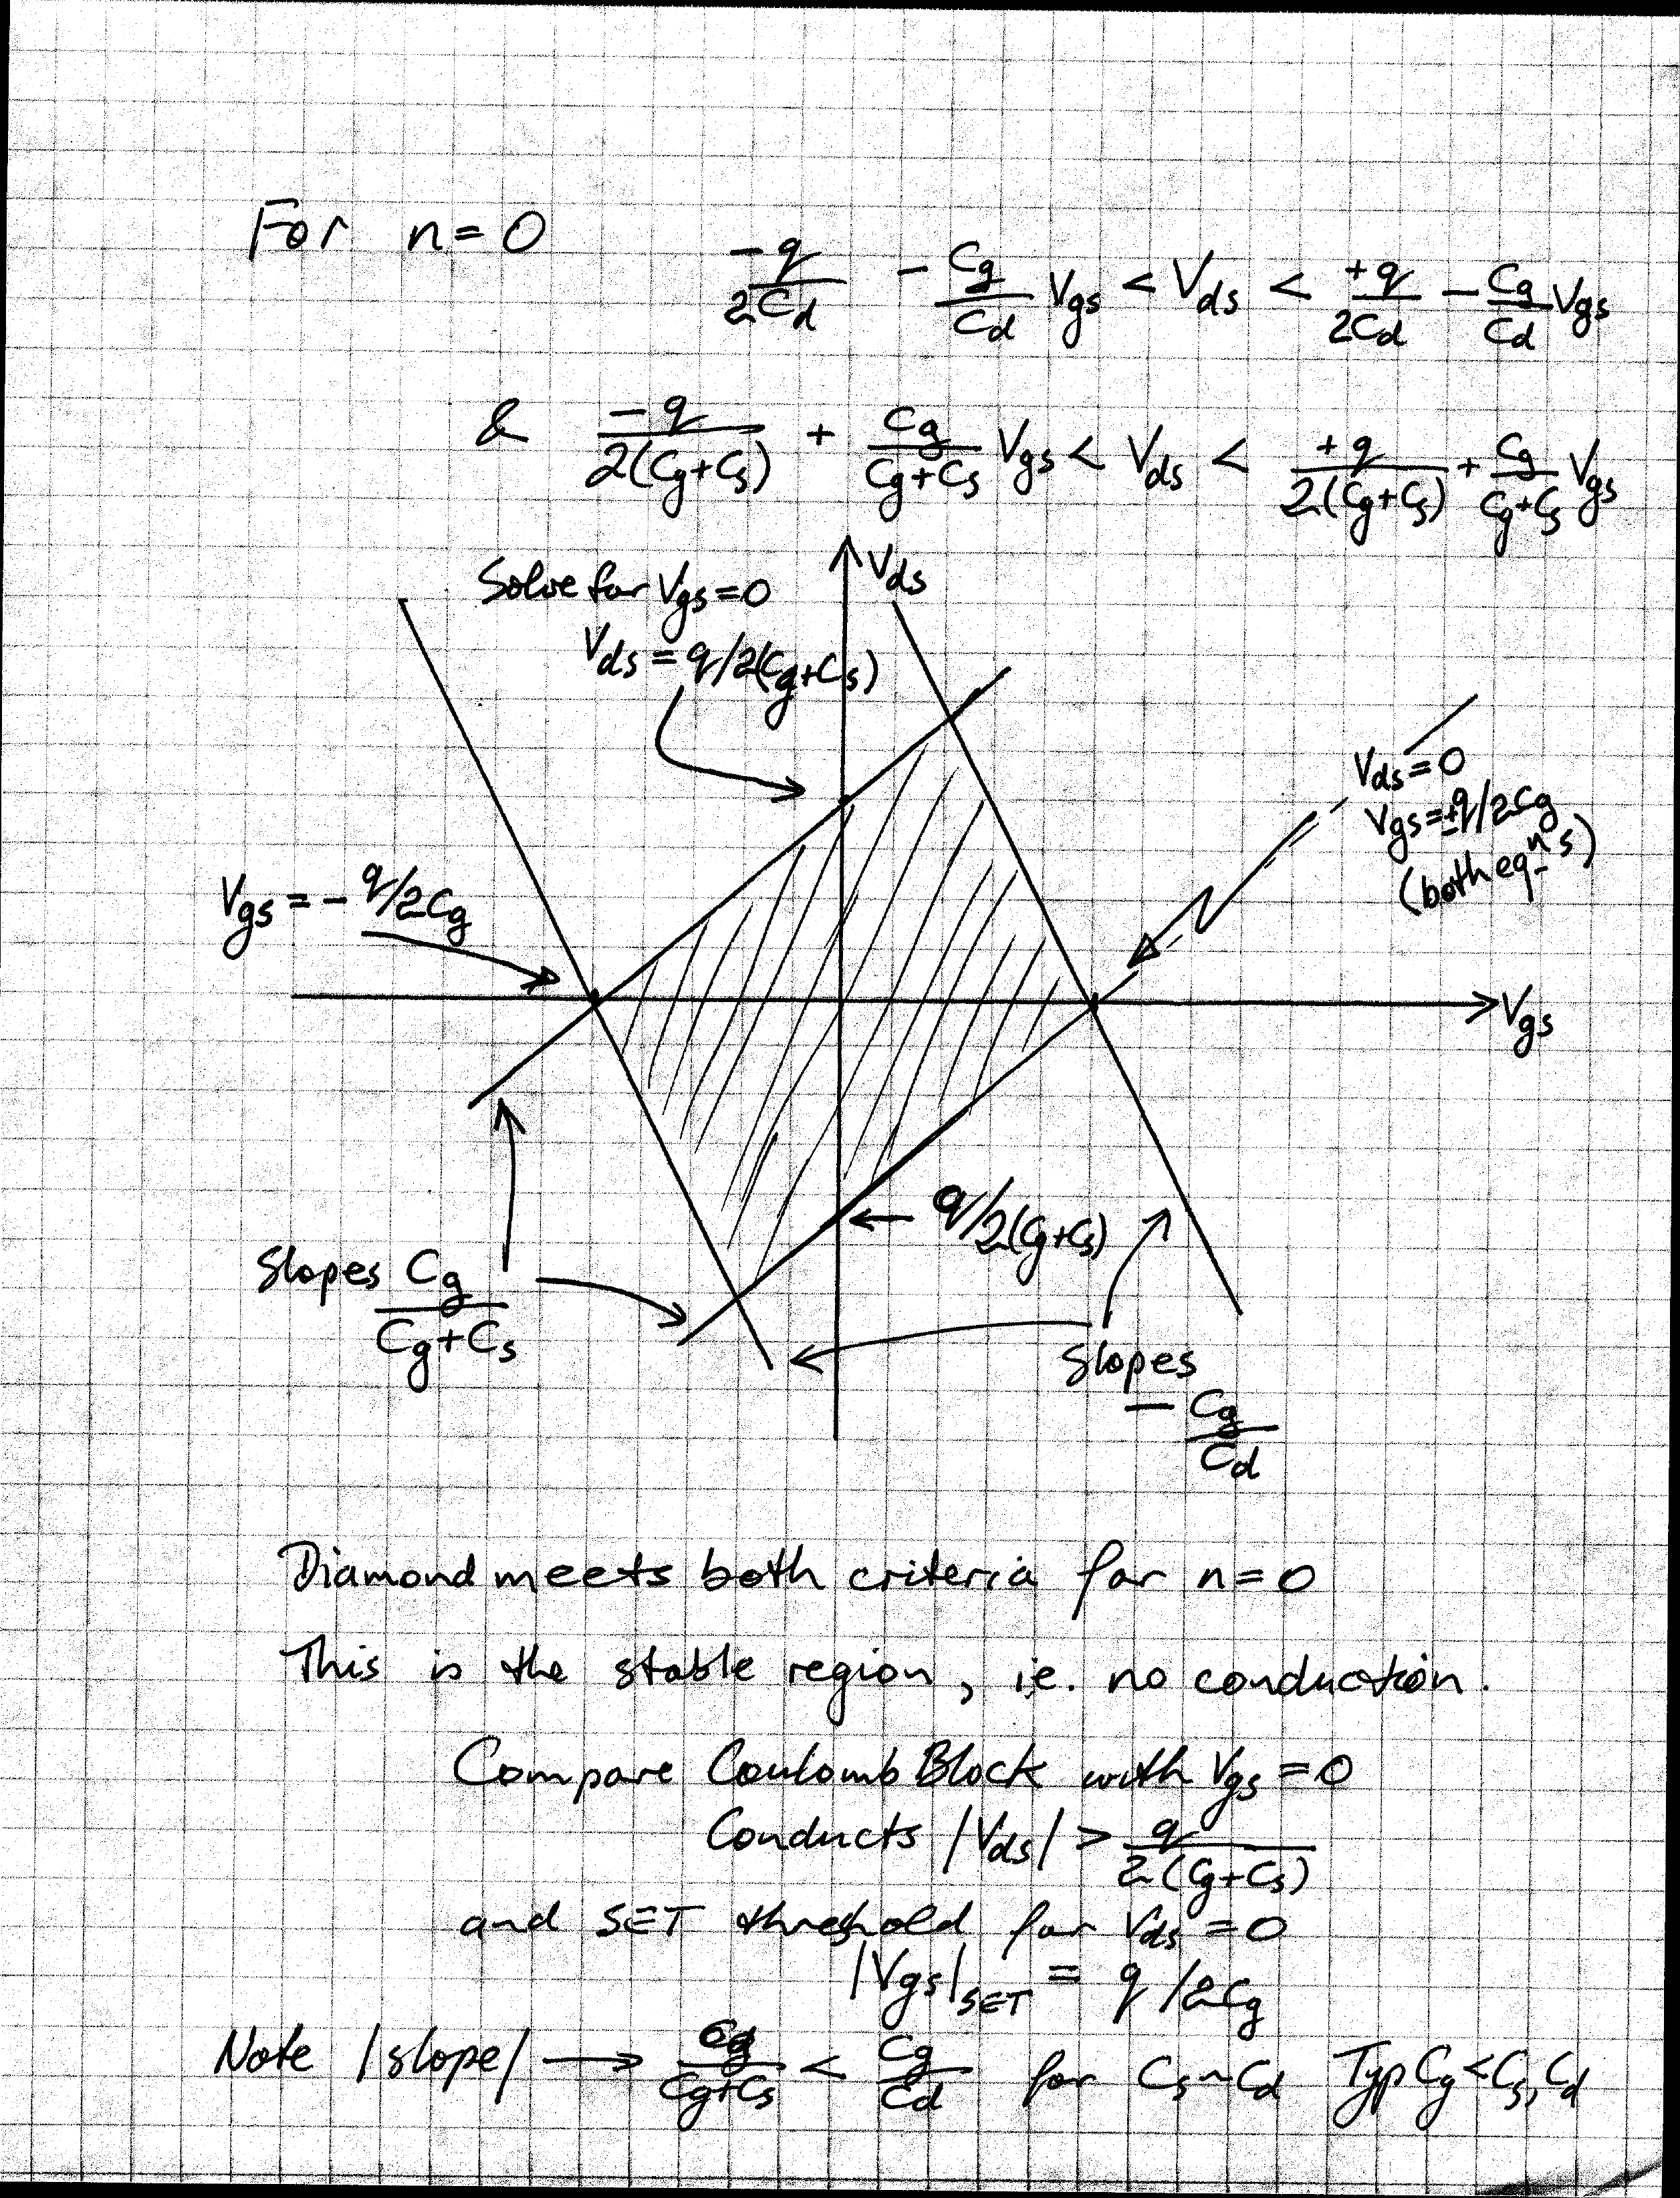 For n = 0
-q/2Cd - Cg/Cd Vgs < Vds < +q/2Cd - Cg/Cd Vgs
& -q/2(Cg+Cs) + Cg/Cg+Cs Vgs < Vds < +q/2(Cg+Cs) + Cg/Cg+Cs Vgs
Vds
Solve for Vgs = 0
Vds = q/2(Cg+Cs)
Vds = 0
Vgs = ±q/2Cg
(both eqⁿs)
Vgs = - q/2Cg
Vgs
q/2(Cg+Cs)
Slopes Cg/Cg+Cs
Slopes
- Cg/Cd
Diamond meets both criteria for n = 0
This is the stable region, i.e. no conduction.
Compare Coulomb Block with Vgs = 0
Conducts |Vds| > q/2(Cg+Cs)
and SET threshold for Vds = 0
|Vgs|SET = q/2Cg
Note |slope| → Cg/Cg+Cs < Cg/Cd for Cs ~ Cd Typ Cg < Cs, Cd